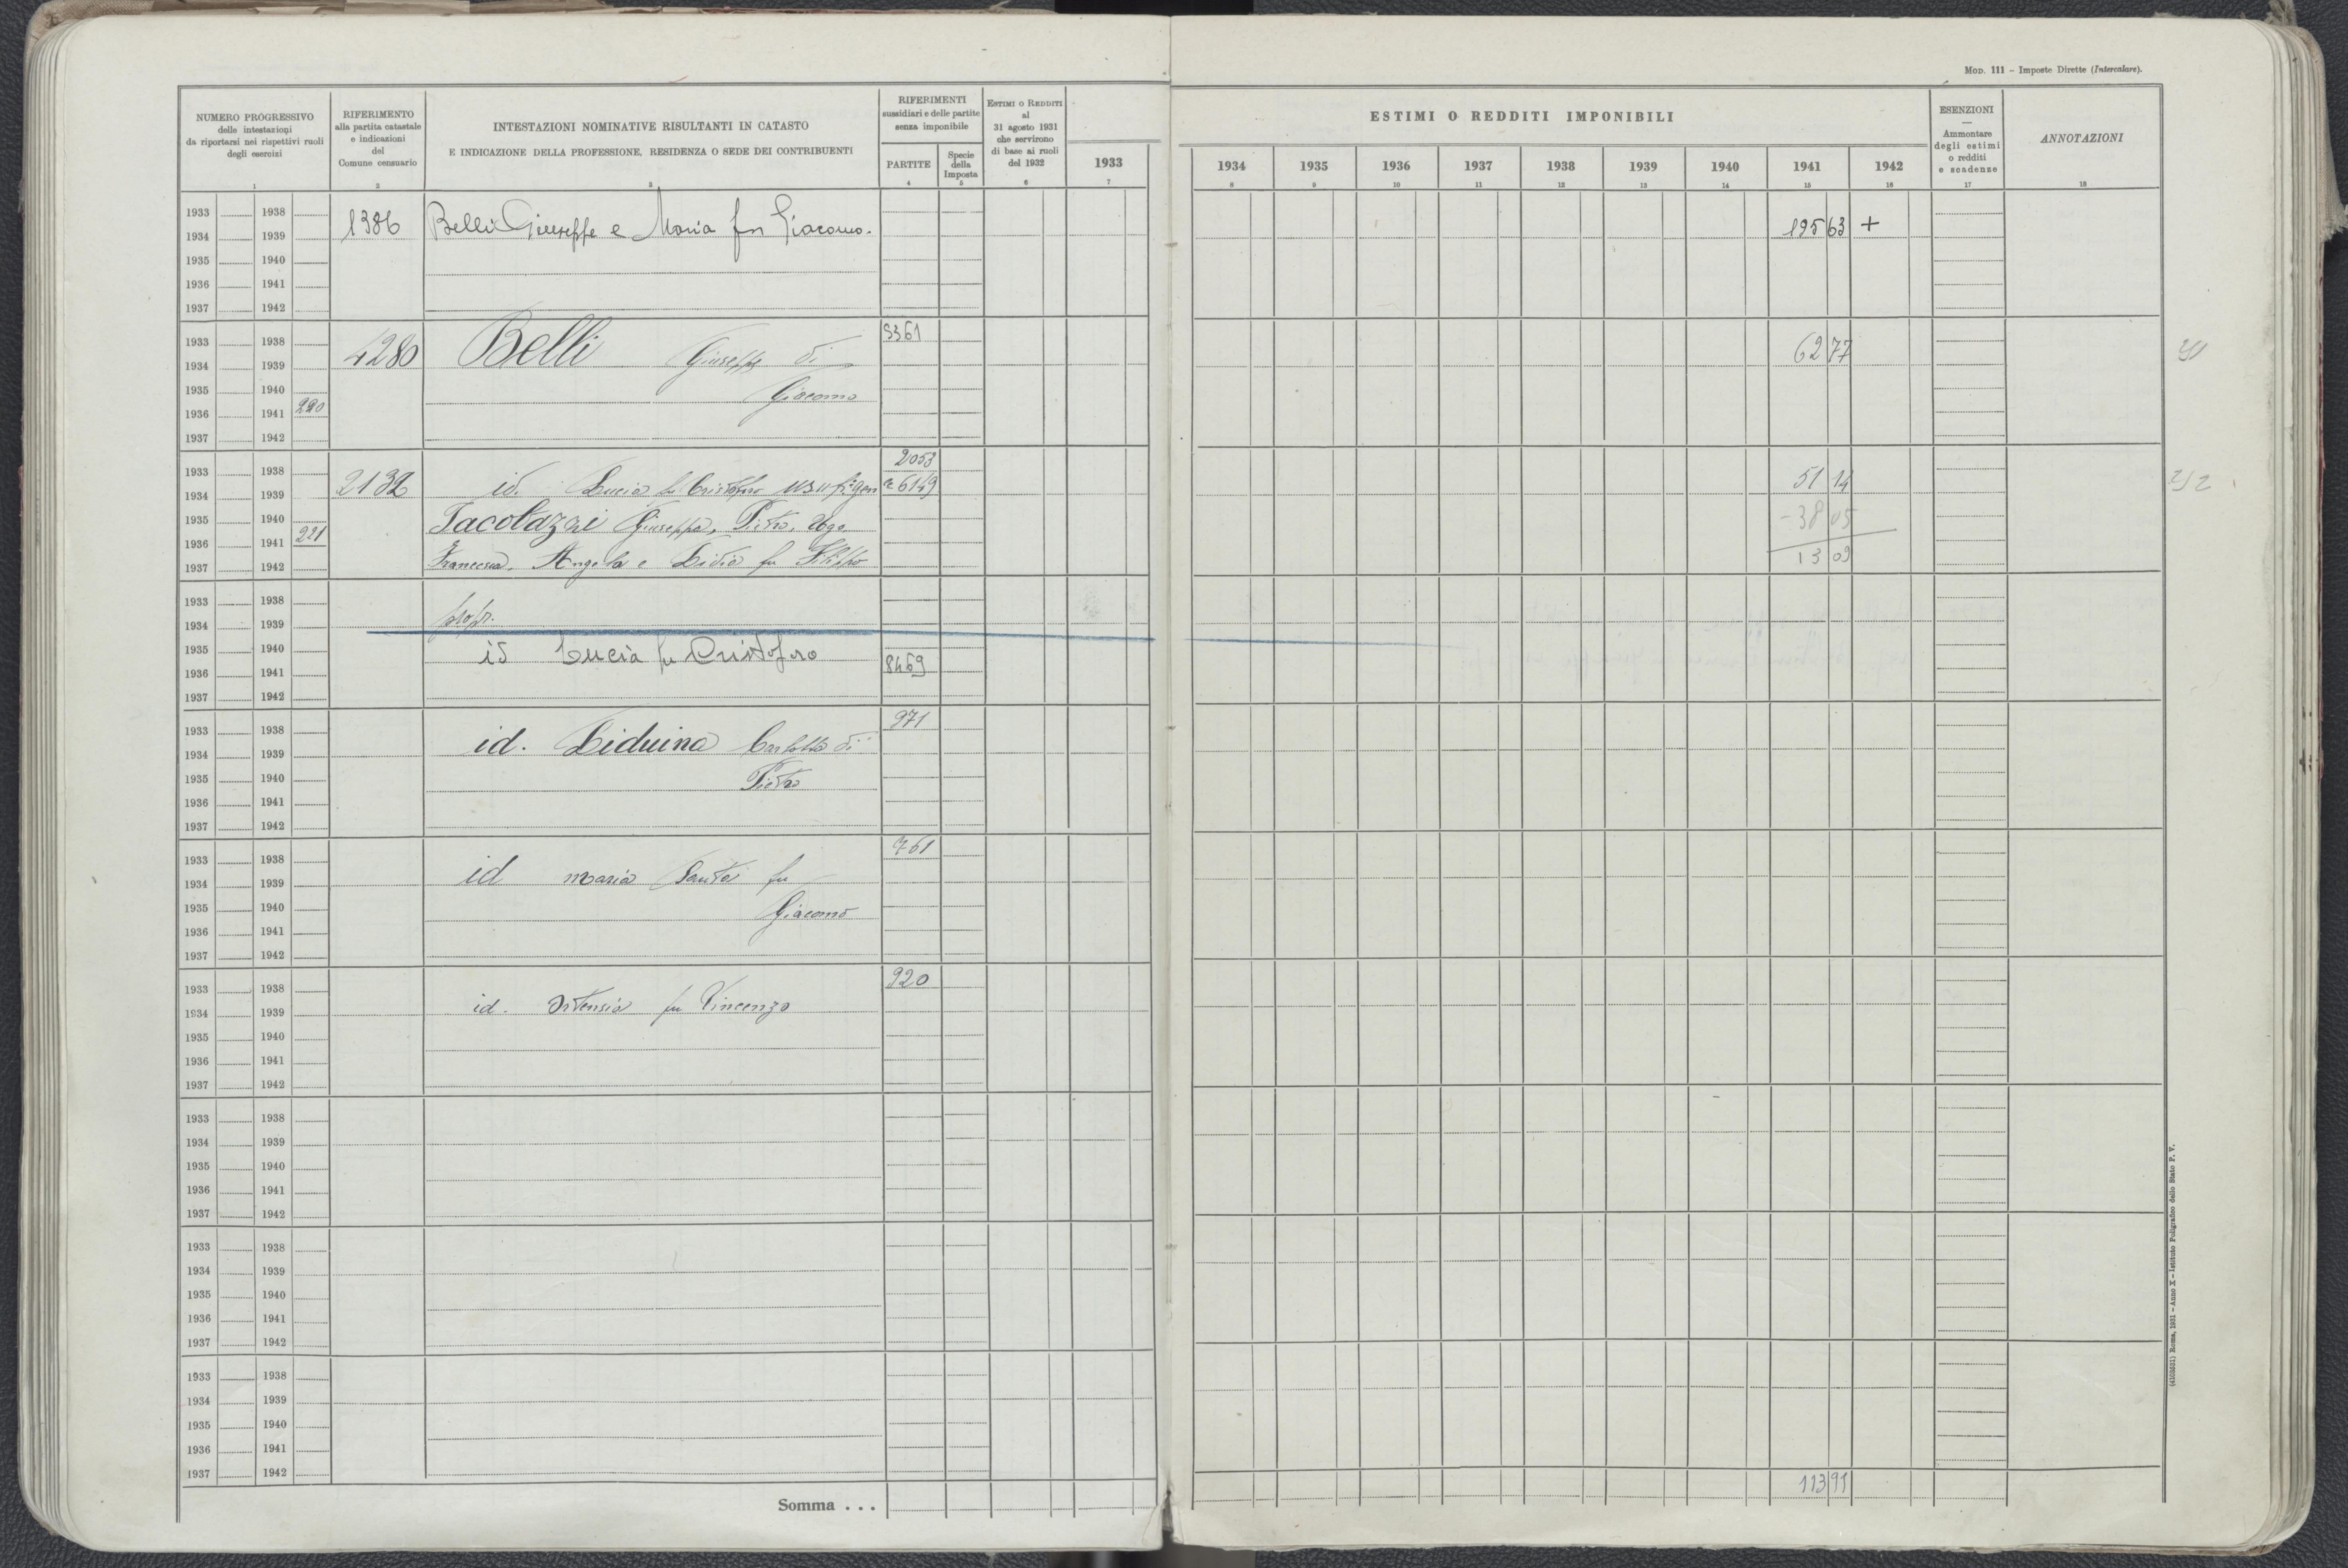 MOD. 111 – Imposte Dirette (Intercalare).
NUMERO PROGRESSIVO
delle intestazioni
da riportarsi nei rispettivi ruoli
degli esercizi
1
RIFERIMENTO
alla partita catastale
e indicazioni
del
Comune censuario
2
INTESTAZIONI NOMINATIVE RISULTANTI IN CATASTO
E INDICAZIONE DELLA PROFESSIONE, RESIDENZA O SEDE DEI CONTRIBUENTI
3
RIFERIMENTI
sussidiari e delle partite
senza imponibile
PARTITE
4
Specie
della
Imposta
5
ESTIMI O REDDITI
al
31 agosto 1931
che servirono
di base ai ruoli
del 1932
6
ESTIMI O REDDITI IMPONIBILI
1933 1934 1935 1936 1937 1938 1939 1940 1941 1942
7 8 9 10 11 12 13 14 15 16
ESENZIONI
—
Ammontare
degli estimi
o redditi
e scadenze
17
ANNOTAZIONI
18
1933 1938
1934 1939 1386 Belli Giuseppe e Maria fu Giacomo. 195 63 +
1935 1940
1936 1941
1937 1942
1933 1938 5361
1934 1939 4280 Belli Giuseppe di 62 77
1935 1940 Giacomo
1936 1941 220
1937 1942
1933 1938 2053
1934 1939 2132 id. Lucia fu Cristoforo usufr. gen 6149 51 14
1935 1940 Jacobazzi Giuseppe, Pietro, Ugo - 38 05
1936 1941 221 13 09
1937 1942 Francesca, Angela e Lidia fu Filippo
1933 1938
1934 1939 propr.
1935 1940 id Lucia fu Cristoforo
1936 1941 8469
1937 1942
1933 1938 971
1934 1939 id. Liduina Carlotta di
1935 1940 Pietro
1936 1941
1937 1942
1933 1938 761
1934 1939 id Maria Santa fu
1935 1940 Giacomo
1936 1941
1937 1942
1933 1938 920
1934 1939 id. Ortensia fu Vincenzo
1935 1940
1936 1941
1937 1942
1933 1938
1934 1939
1935 1940
1936 1941
1937 1942
1933 1938
1934 1939
1935 1940
1936 1941
1937 1942
1933 1938
1934 1939
1935 1940
1936 1941
1937 1942
Somma . . . 113 91
Roma, 1931 – Anno X – Istituto Poligrafico dello Stato P. V.